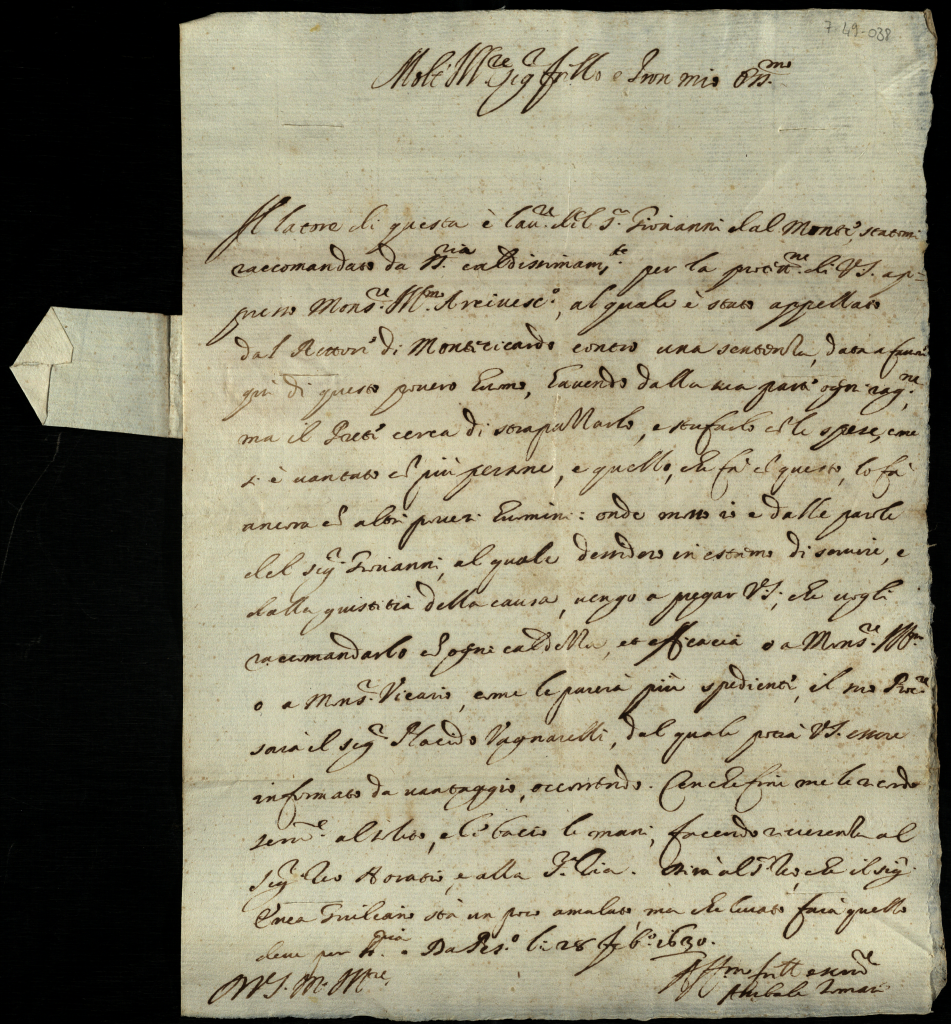 7-49-038
Molt' Ill.re Sig.r frĩllo e Pron mio Oss.mo
Il latore di questa è lau.re del S.r Giovanni dal Monte, statomi
raccomandato da caldissimam.te per la prottne. di V.S. ap-
presso Mons.re Ill.mo Arcivesc.o, al quale è stato appellato
dal Rettore di Monteciccardo contro una sentenza, data a favore
qui di questo povero huomo, havendo dalla sua parte ogni rag.ne,
ma il Prete cerca di strapazzarlo, e stufarlo cõ le spese, come
s'è vantato cõ più persone, e quello, che fà cõ questo, lo fà
ancora cõ altri poveri humini: onde mosso io e dalle parole
del sig.r Giovanni, al quale desidero in estremo di servire, e
dalla giustitia della causa, vengo a pregar V.S., che vogli
racomandarlo cõ ogni caldezza, et efficacia o a Mons.re Ill.mo
o a Mons.r Vicario, come le parerà più spediente, il suo Proc.re
sarà il sig.r Placido Vagnarelli, dal quale potrà V.S. essere
informato da vantaggio, occorrendo. Con che fine me le ricordo
ser.re al solito, e le bacio le mani, facendo riverenza al
sig.r Zio Horatio, e alla S.ra Zia. Dirà al S.r Zio, che il sig.r
Enea Giuliano stà un poco amalato ma che levato farà quello
deve per Da Pes.o li 28 feb.o 1630.
D V.S. M. Ill.re
Aff.mo frãll e ser.re
Anibale